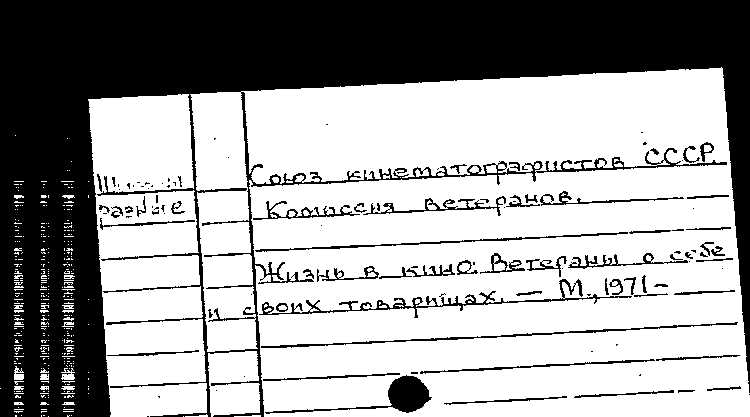 Союз кинематографистов СССР.
разные
Комиссия ветеранов.
Жизнь в кино: Ветераны о себе
и своих товарищах. — М., 1971 –